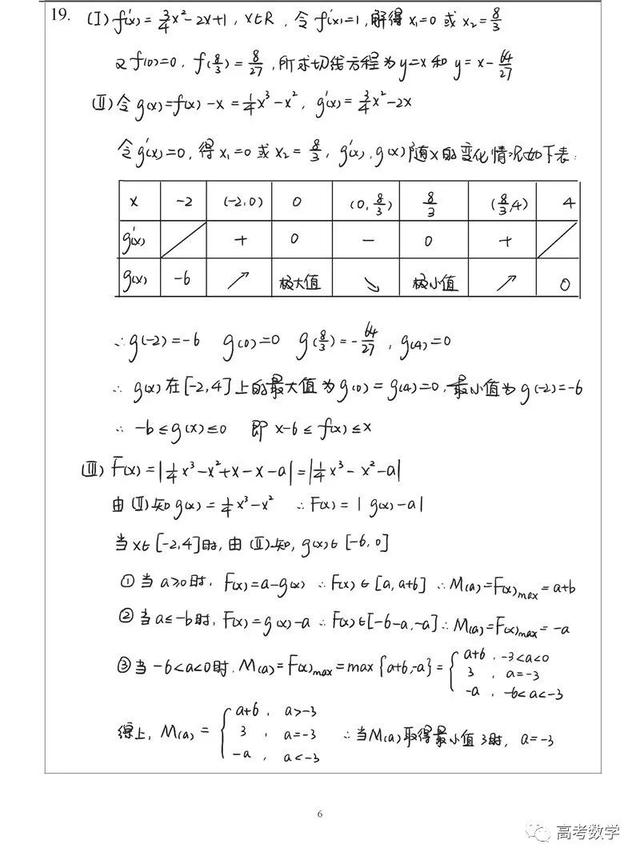 19. (I) f'(x)=3/4x²-2x+1, x∈R, 令f'(x)=1, 解得x₁=0 或 x₂=8/3
又f(0)=0, f(8/3)=8/27, 所求切线方程为y=x和 y=x-64/27
(II)令g(x)=f(x)-x=1/4x³-x², g'(x)=3/4x²-2x
令g'(x)=0, 得x₁=0或x₂=8/3, g'(x), g(x)随x的变化情况如下表:
x -2 (-2,0) 0 (0,8/3) 8/3 (8/3,4) 4
g'(x) + 0 - 0 +
g(x) -6 ↗ 极大值 ↘ 极小值 ↗ 0
∴g(-2)=-6 g(0)=0 g(8/3)=-64/27, g(4)=0
∴ g(x)在[-2,4]上的最大值为g(0)=g(4)=0, 最小值为g(-2)=-6
∴ -6≤g(x)≤0 即 x-6≤f(x)≤x
(III) F(x)=|1/4x³-x²+x-x-a|=|1/4x³-x²-a|
由(II)知g(x)=1/4x³-x² ∴F(x)=|g(x)-a|
当x∈[-2,4]时, 由(II)知, g(x)∈[-6,0]
①当a≥0时, F(x)=a-g(x) ∴F(x)∈[a,a+6] ∴M(a)=F(x)max=a+6
②当a≤-6时, F(x)=g(x)-a ∴F(x)∈[-6-a,-a] ∴M(a)=F(x)max=-a
③当-6<a<0时, M(a)=F(x)max=max{a+6,-a}={a+6, -3<a<0
3, a=-3
-a, -6<a<-3
综上, M(a)={a+6, a>-3
3, a=-3
-a, a<-3
∴当M(a)取得最小值3时, a=-3
6
高考数学